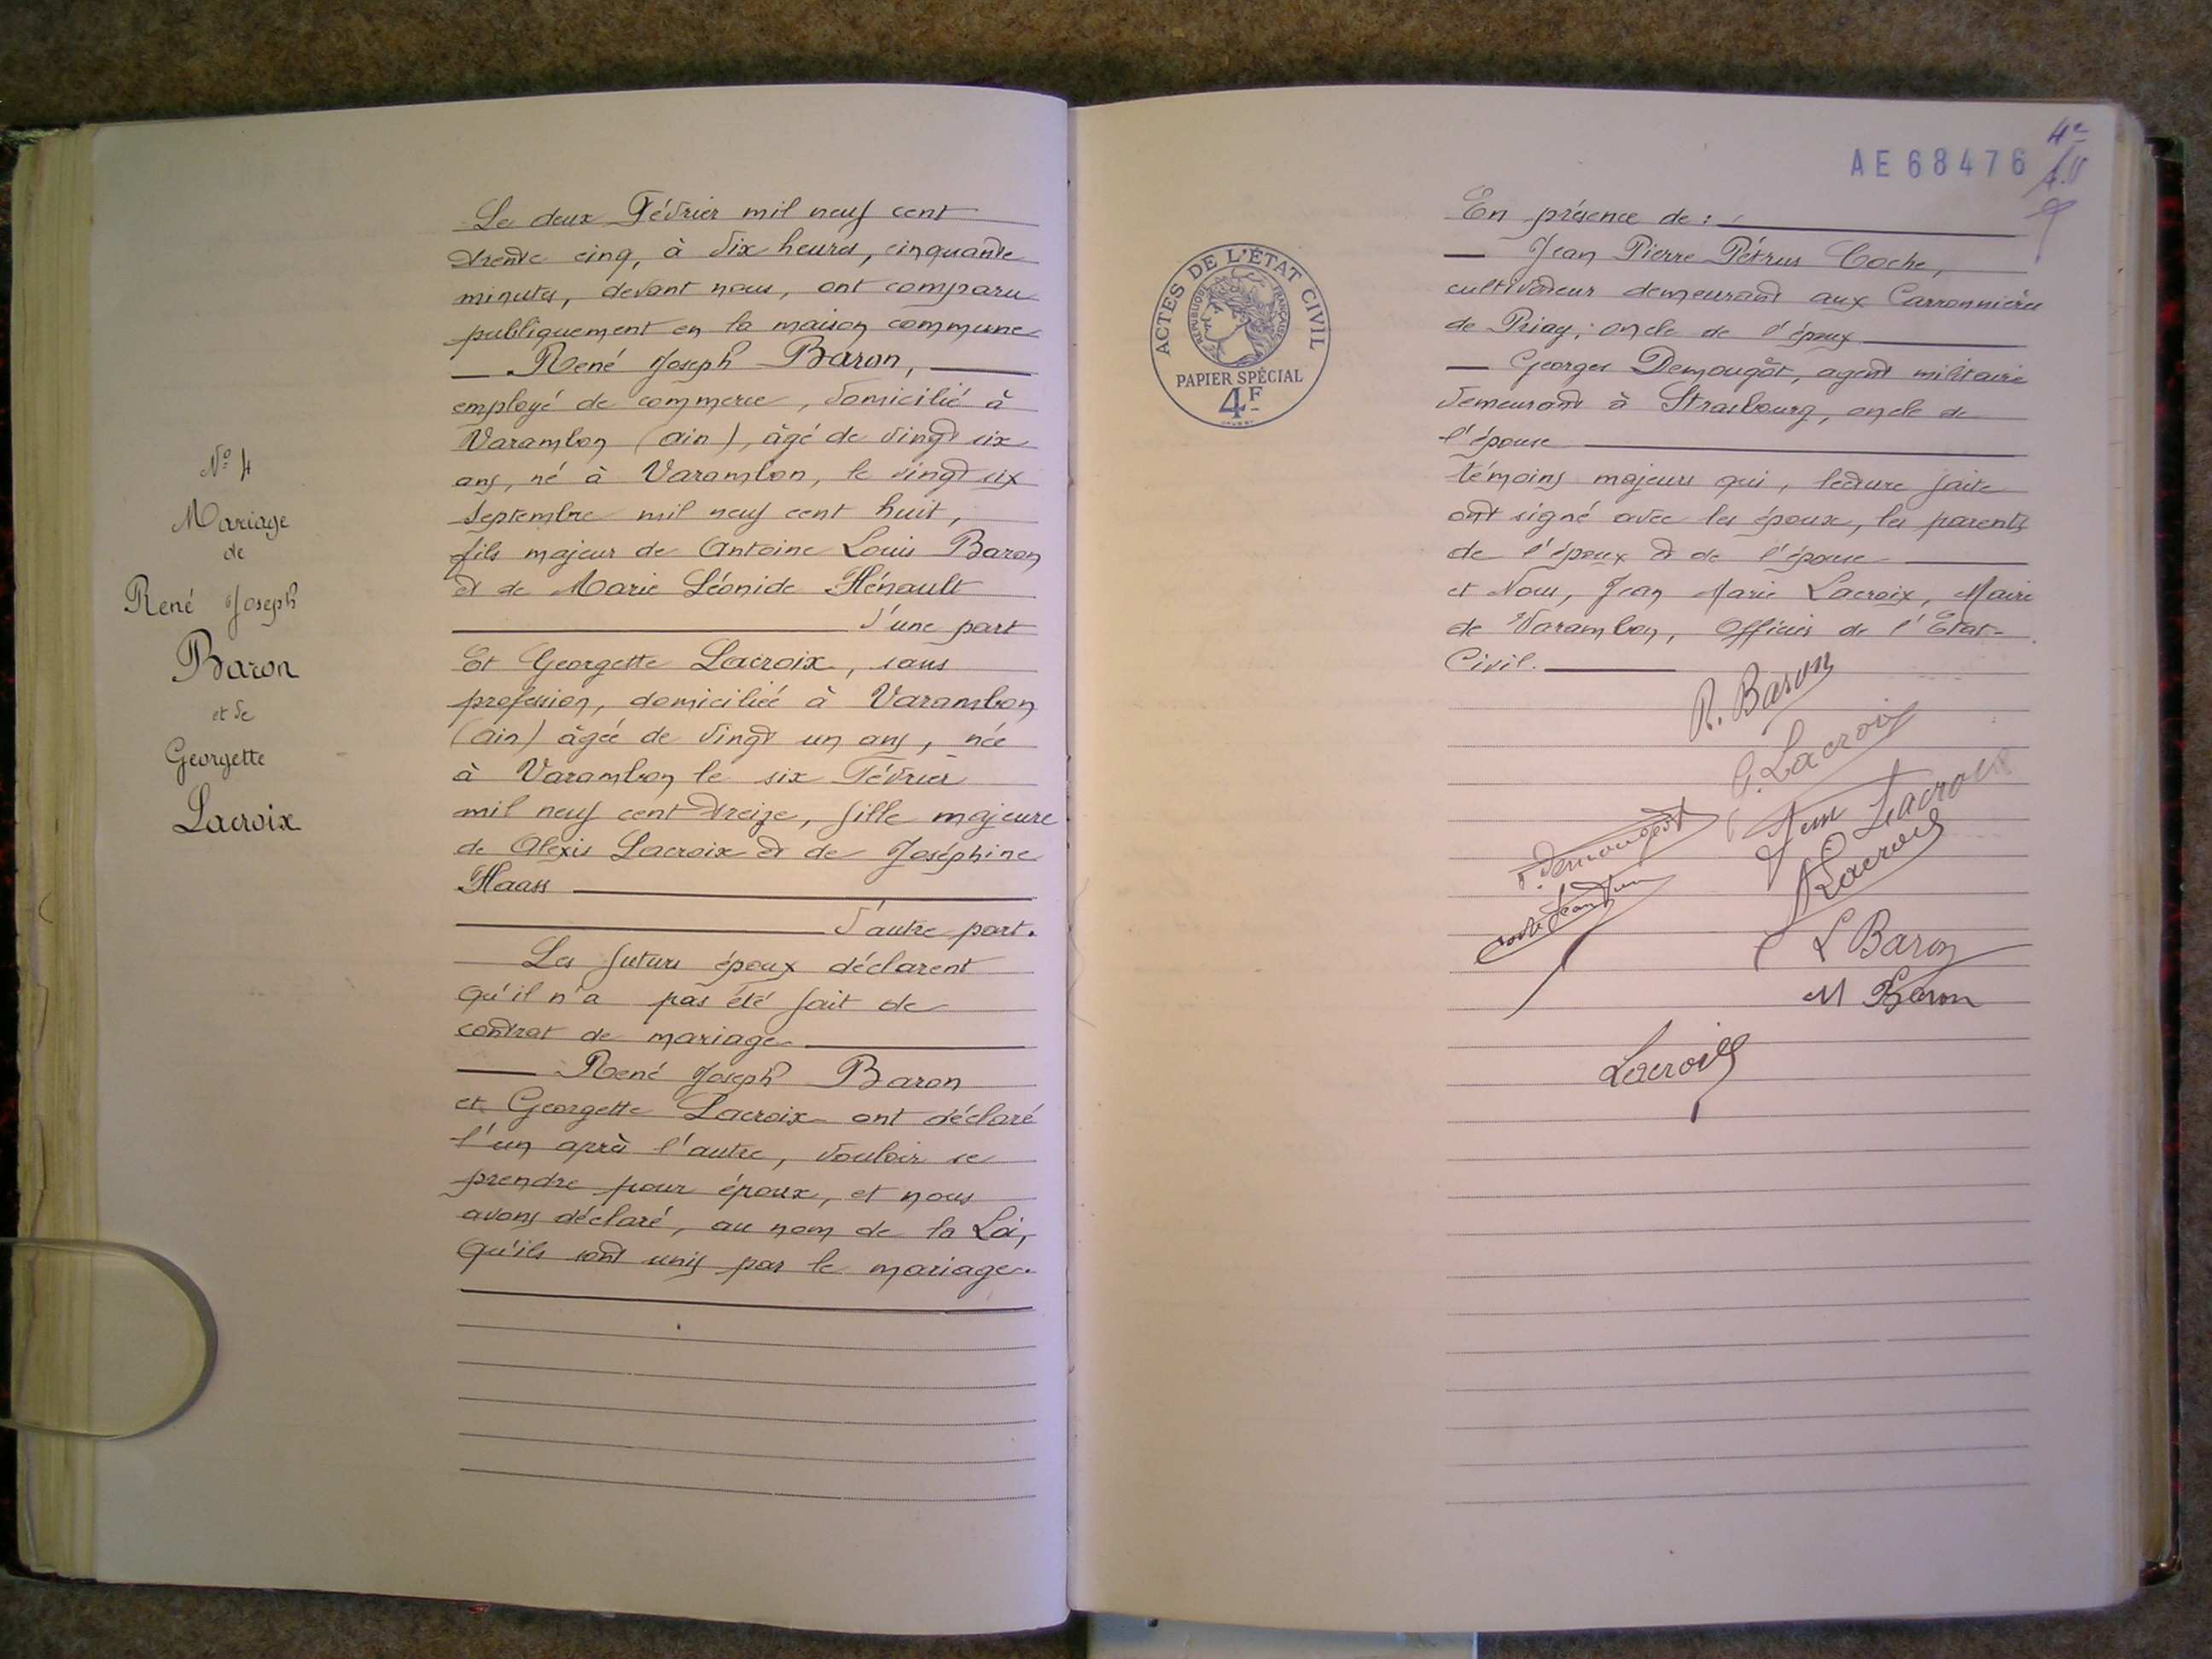 Le deux Février mil neuf cent
trente cinq, à dix heures, cinquante
minutes, devant nous, ont comparu
publiquement en la maison commune
René Joseph Baron,
employé de commerce, domicilié à
Varambon (Ain), âgé de vingt six
ans, né à Varambon, le vingt six
Septembre mil neuf cent huit,
fils majeur de Antoine Louis Baron
et de Marie Léonide Hénault
d'une part
Et Georgette Lacroix, sans
profession, domiciliée à Varambon
(Ain) âgée de vingt un ans, née
à Varambon le six Février
mil neuf cent treize, fille majeure
de Alexis Lacroix et de Joséphine
Haass
d'autre part.
Les futurs époux déclarent
qu'il n'a pas été fait de
contrat de mariage
René Joseph Baron
et Georgette Lacroix ont déclaré
l'un après l'autre, vouloir se
prendre pour époux, et nous
avons déclaré, au nom de la Loi,
qu'ils sont unis par le mariage.
Nº 4
Mariage
de
René Joseph
Baron
et de
Georgette
Lacroix
4e
AE 68476
ACTES DE L'ÉTAT CIVIL
RÉPUBLIQUE FRANÇAISE
PAPIER SPÉCIAL
4F
En présence de :
Jean Pierre Pétrus Coche,
cultivateur demeurant aux Carronnières
de Priay, oncle de l'époux
Georges Demougeot, agent militaire
demeurant à Strasbourg, oncle de
l'épouse
témoins majeurs qui, lecture faite
ont signé avec les époux, les parents
de l'époux et de l'épouse
et Nous, Jean Marie Lacroix, Maire
de Varambon, Officier de l'Etat-
Civil.
R. Baron
G. Lacroix
Lacroix
Demougeot
Lacroix
L Baron
M Baron
Lacroix